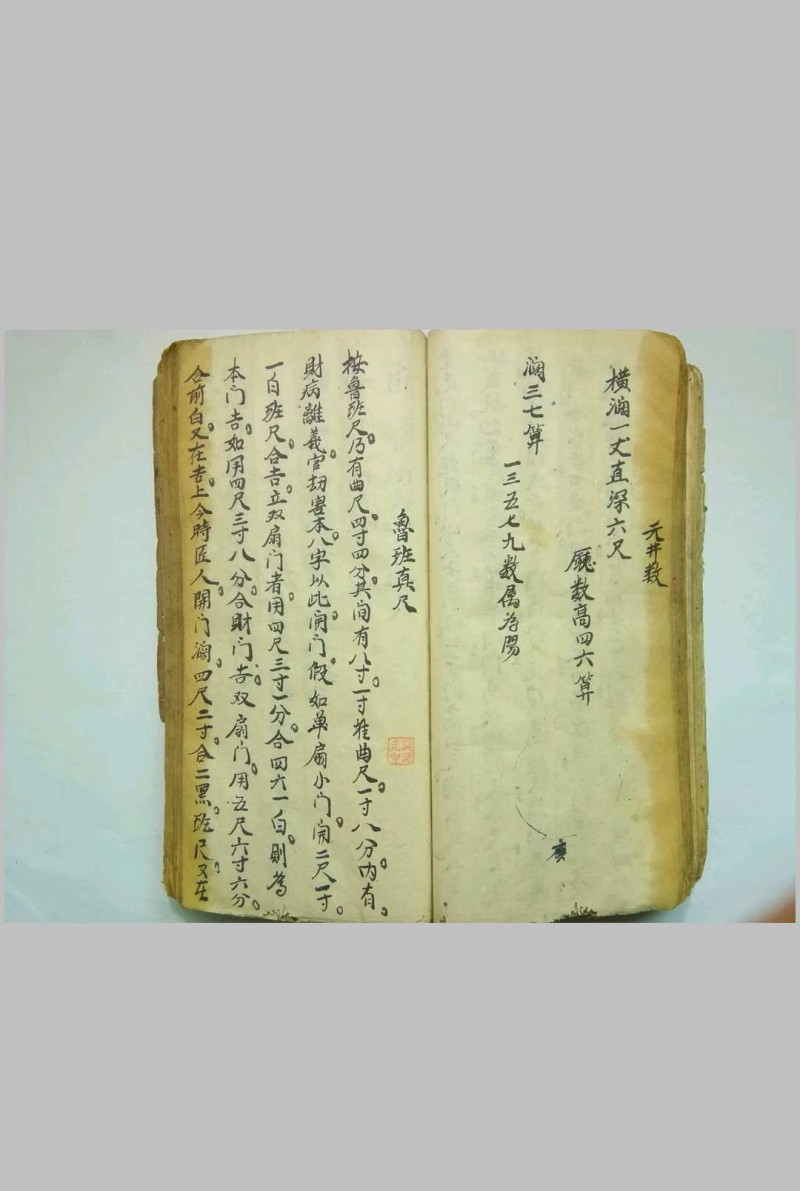 天井数
横濶一丈直深六尺
廳数高四六算
濶三七算
一三五七九数属為陽
魯班真尺
按魯班尺乃有曲尺。四寸四分。其间有八寸。一寸推曲尺。一寸八分。内有。
財病離義。官劫害本。八字以此。闭门。假如单扇小门。闭二尺一寸。
一白。班尺。合吉。立双扇门者。用四尺三寸一分。合四六一白。则為
本门吉。如用四尺三寸八分。合財门。吉。双扇门。用五尺六寸六分。
合前白。又在吉。上今時匠人。開门濶。四尺二寸。合二黑。班尺又在